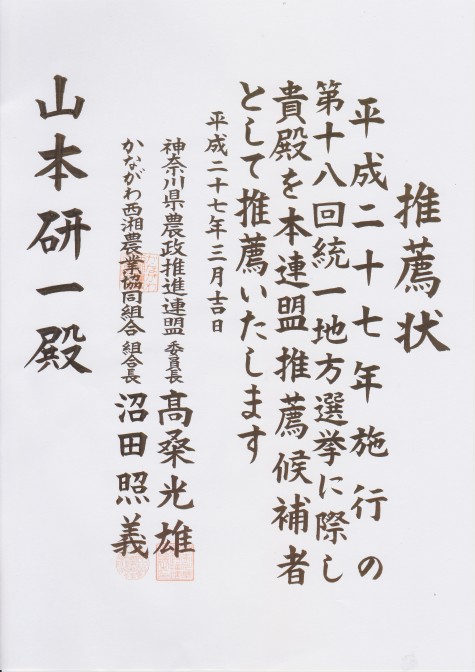 推薦状
平成二十七年施行の
第十八回統一地方選挙に際し
貴殿を本連盟推薦候補者
として推薦いたします
平成二十七年三月吉日
神奈川県農政推進連盟 委員長 高桑光雄
かながわ西湘農業協同組合 組合長 沼田照義
山本研一殿